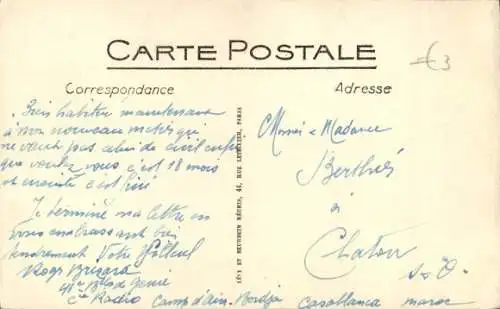 CARTE POSTALE
€3
Correspondance
Adresse
Bien habitué maintenant
à mon nouveau métier qui
ne vaut pas celui de civil enfin
que voulez vous c'est 18 mois
et ensuite c'est fini
Je termine ma lettre en
vous embrassant bien
tendrement Votre filleul
Roger
41e Btn de Génie
Cie Radio Camp d'Ain-Bordja Casablanca Maroc
LÉVY ET NEURDEIN RÉUNIS, 44, RUE LETELLIER, PARIS
et Madame
Berthés
à
Chatou
S & O